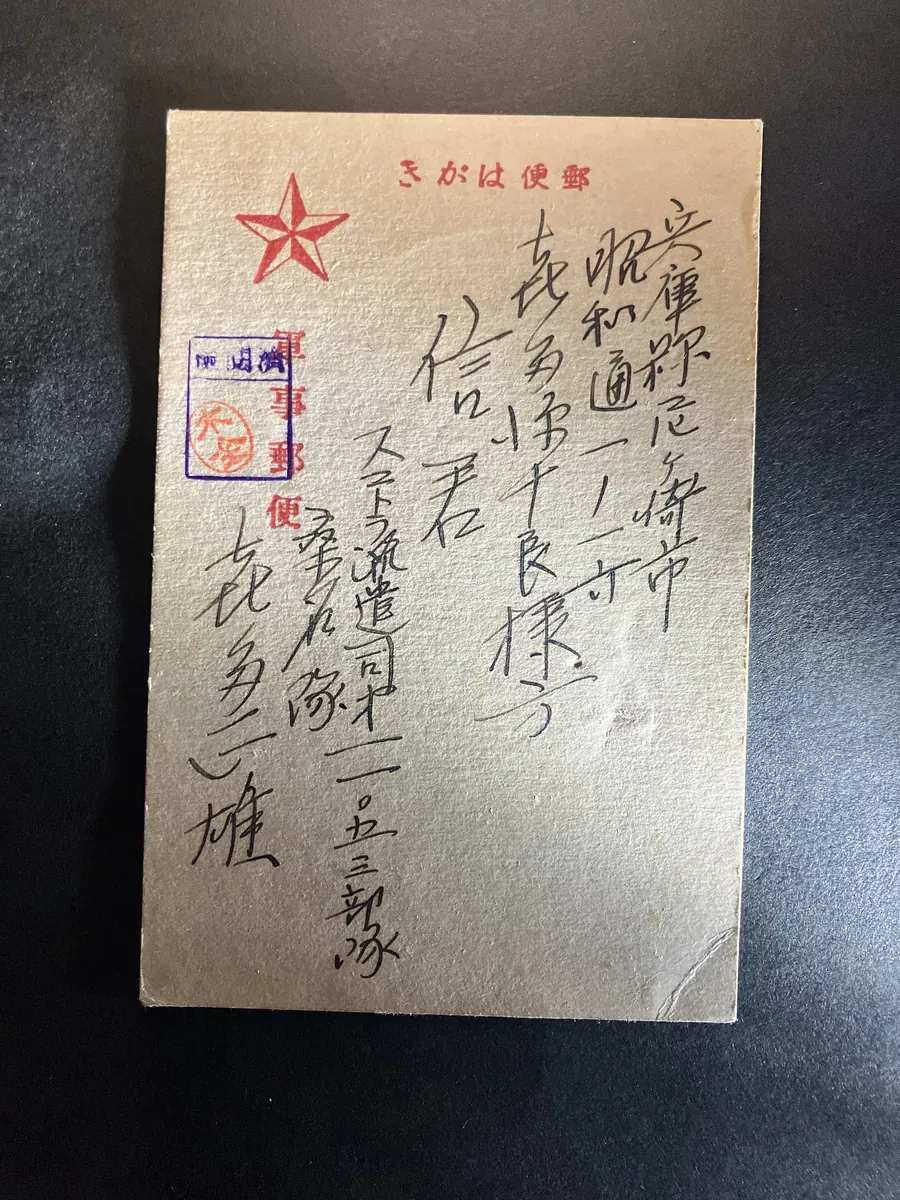 郵便はがき
兵庫縣尼ヶ崎市
昭和通一ノ一
喜多源十良様方
信君
軍事郵便
検閲済
スマトラ派遣司才一一〇五三部隊
桑名隊
喜多正雄